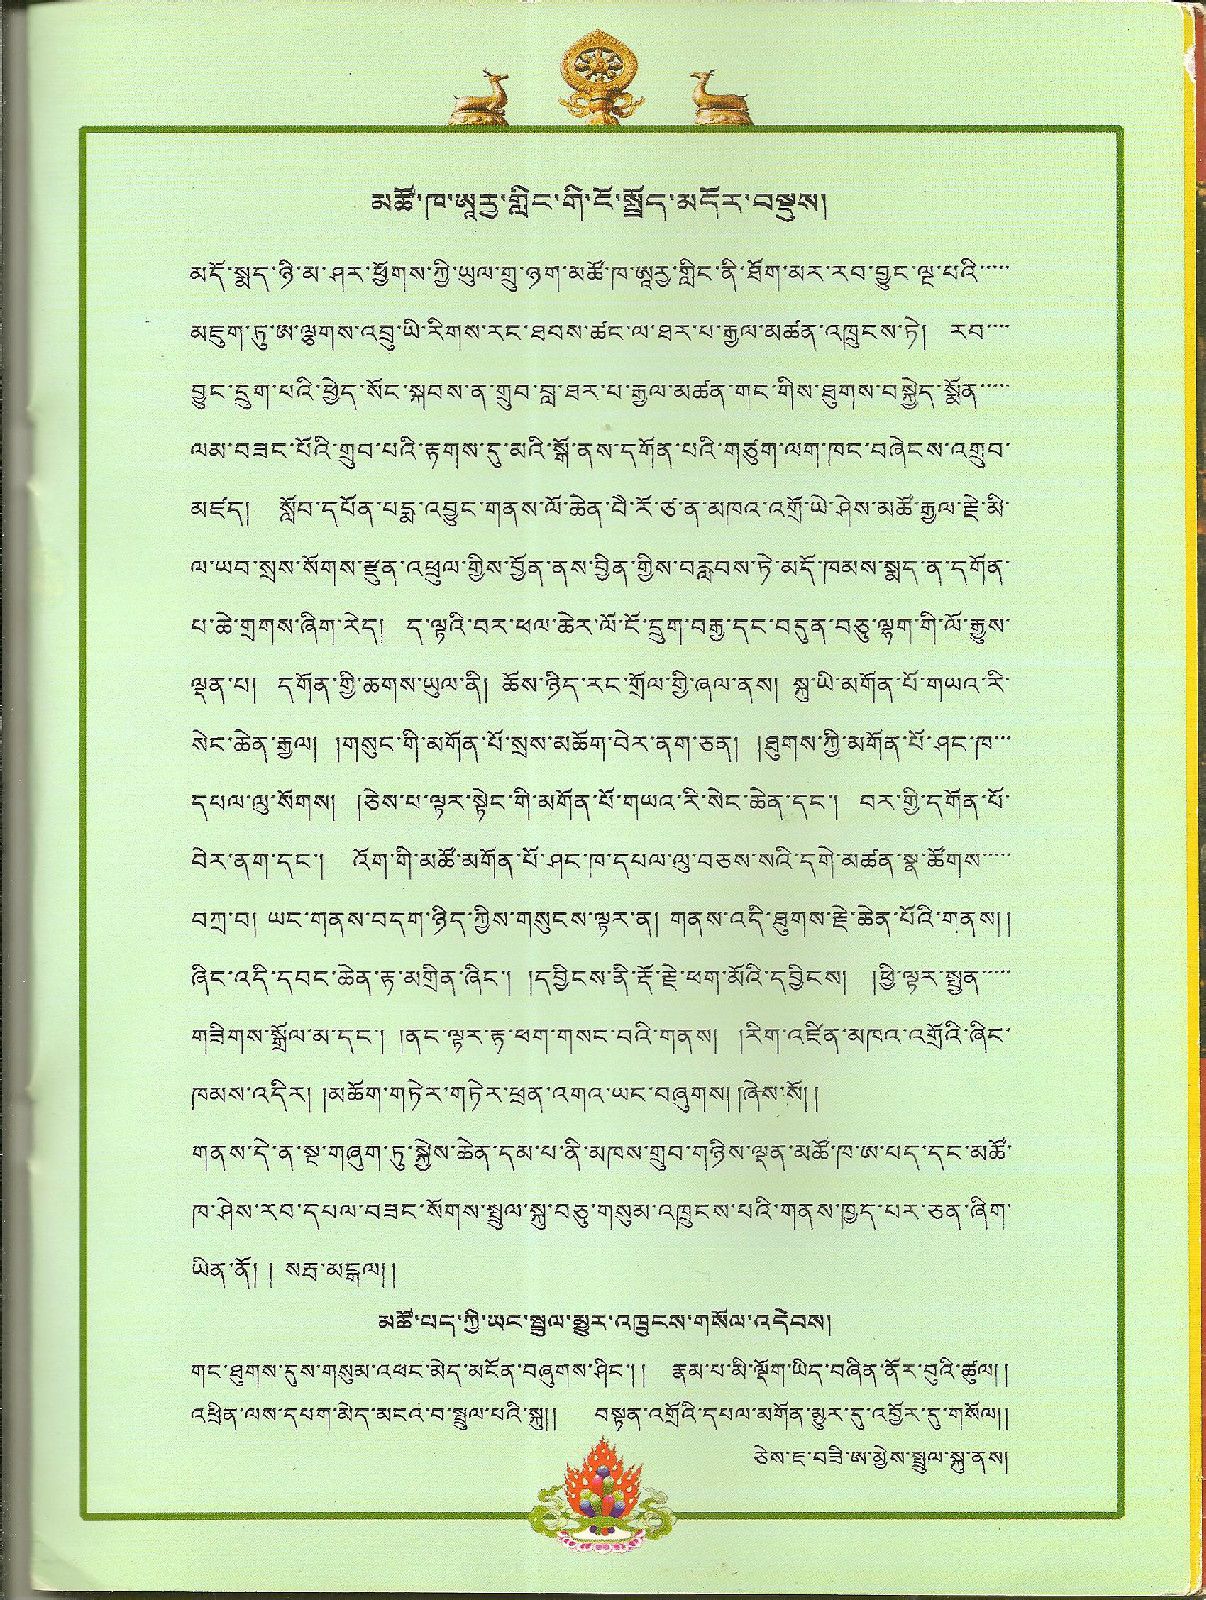 མཚོ་ཁ་ཨཱརྱ་གླིང་གི་ངོ་སྤྲོད་མདོར་བསྡུས།
མདོ་སྨད་ཉི་མ་ཤར་ཕྱོགས་ཀྱི་ཡུལ་གྲུ་ཉག་མཚོ་ཁ་ཨཱརྱ་གླིང་ནི་ཐོག་མར་རབ་བྱུང་ལྔ་པའི་····
མཇུག་ཏུ་ཨ་ལྕགས་འབྲུ་ཡི་རིགས་རང་ཐབས་ཚང་ལ་ཐར་པ་རྒྱལ་མཚན་འཁྲུངས་ཏེ། རབ་···
བྱུང་དྲུག་པའི་ཕྱེད་སོང་སྐབས་ན་གྲུབ་བླ་ཐར་པ་རྒྱལ་མཚན་གང་གིས་ཐུགས་བསྐྱེད་སྨོན་····
ལམ་བཟང་པོའི་གྲུབ་པའི་རྟགས་དུ་མའི་སྒོ་ནས་དགོན་པའི་གཙུག་ལག་ཁང་བཞེངས་འགྲུབ་
མཛད། སློབ་དཔོན་པདྨ་འབྱུང་གནས་ལོ་ཆེན་བཻ་རོ་ཙ་ན་མཁའ་འགྲོ་ཡེ་ཤེས་མཚོ་རྒྱལ་རྗེ་མི་
ལ་ཡབ་སྲས་སོགས་རྫུན་འཕྲུལ་གྱིས་བྱོན་ནས་བྱིན་གྱིས་བརླབས་ཏེ་མདོ་ཁམས་སྨད་ན་དགོན་
པ་ཆེ་གྲགས་ཞིག་རེད། ད་ལྟའི་བར་ཕལ་ཆེར་ལོ་ངོ་དྲུག་བརྒྱ་དང་བདུན་བཅུ་ལྷག་གི་ལོ་རྒྱུས་
ལྡན་པ། དགོན་གྱི་ཆགས་ཡུལ་ནི། ཆོས་ཉིད་རང་གྲོལ་གྱི་ཞལ་ནས། སྐུ་ཡི་མགོན་པོ་གཡའ་རི་
སེང་ཆེན་རྒྱལ། །གསུང་གི་མགོན་པོ་སྲས་མཆོག་བེར་ནག་ཅན། །ཐུགས་ཀྱི་མགོན་པོ་ཤང་ཁ་···
དཔལ་ལུ་སོགས། །ཅེས་པ་ལྟར་སྟེང་གི་མགོན་པོ་གཡའ་རི་སེང་ཆེན་དང་། བར་གྱི་དགོན་པོ་
བེར་ནག་དང་། འོག་གི་མཚོ་མགོན་པོ་ཤང་ཁ་དཔལ་ལུ་བཅས་སའི་དགེ་མཚན་སྣ་ཚོགས་····
བཀྲ་བ། ཡང་གནས་བདག་ཉིད་ཀྱིས་གསུངས་ལྟར་ན། གནས་འདི་ཐུགས་རྗེ་ཆེན་པོའི་གནས།།
ཞིང་འདི་དབང་ཆེན་རྟ་མགྲིན་ཞིང་། །དབྱིངས་ནི་རྡོ་རྗེ་ཕག་མོའི་དབྱིངས། །ཕྱི་ལྟར་སྤྱན་····
གཟིགས་སྒྲོལ་མ་དང་། །ནང་ལྟར་རྟ་ཕག་གསང་བའི་གནས། །རིག་འཛིན་མཁའ་འགྲོའི་ཞིང་
ཁམས་འདིར། །མཆོག་གཏེར་གཏེར་ཕྲན་འགའ་ཡང་བཞུགས། །ཞེས་སོ།།
གནས་དེ་ན་སྔ་གཞུག་ཏུ་སྐྱེས་ཆེན་དམ་པ་ནི་མཁས་གྲུབ་གཉིས་ལྡན་མཚོ་ཁ་ཨ་པད་དང་མཚོ་
ཁ་ཤེས་རབ་དཔལ་བཟང་སོགས་སྤྲུལ་སྐུ་བཅུ་གསུམ་འཁྲུངས་པའི་གནས་ཁྱད་པར་ཅན་ཞིག་
ཡིན་ནོ།། སརྦ་མངྒལ།།
མཚོ་པད་ཀྱི་ཡང་སྤྲུལ་མྱུར་འཁྲུངས་གསོལ་འདེབས།
གང་ཐུགས་དུས་གསུམ་འཕང་མེད་མངོན་བཞུགས་ཤིང་།། རྣམ་པ་མི་ལྡོག་ཡིད་བཞིན་ནོར་བུའི་ཚུལ།།
འཕྲིན་ལས་དཔག་མེད་མངའ་བ་སྤྲུལ་པའི་སྐུ།། བསྟན་འགྲོའི་དཔལ་མགོན་མྱུར་དུ་འབྱོར་དུ་གསོལ།།
ཅེས་ང་བཟི་ཨ་མྱེས་སྤྲུལ་སྐུ་ནས།